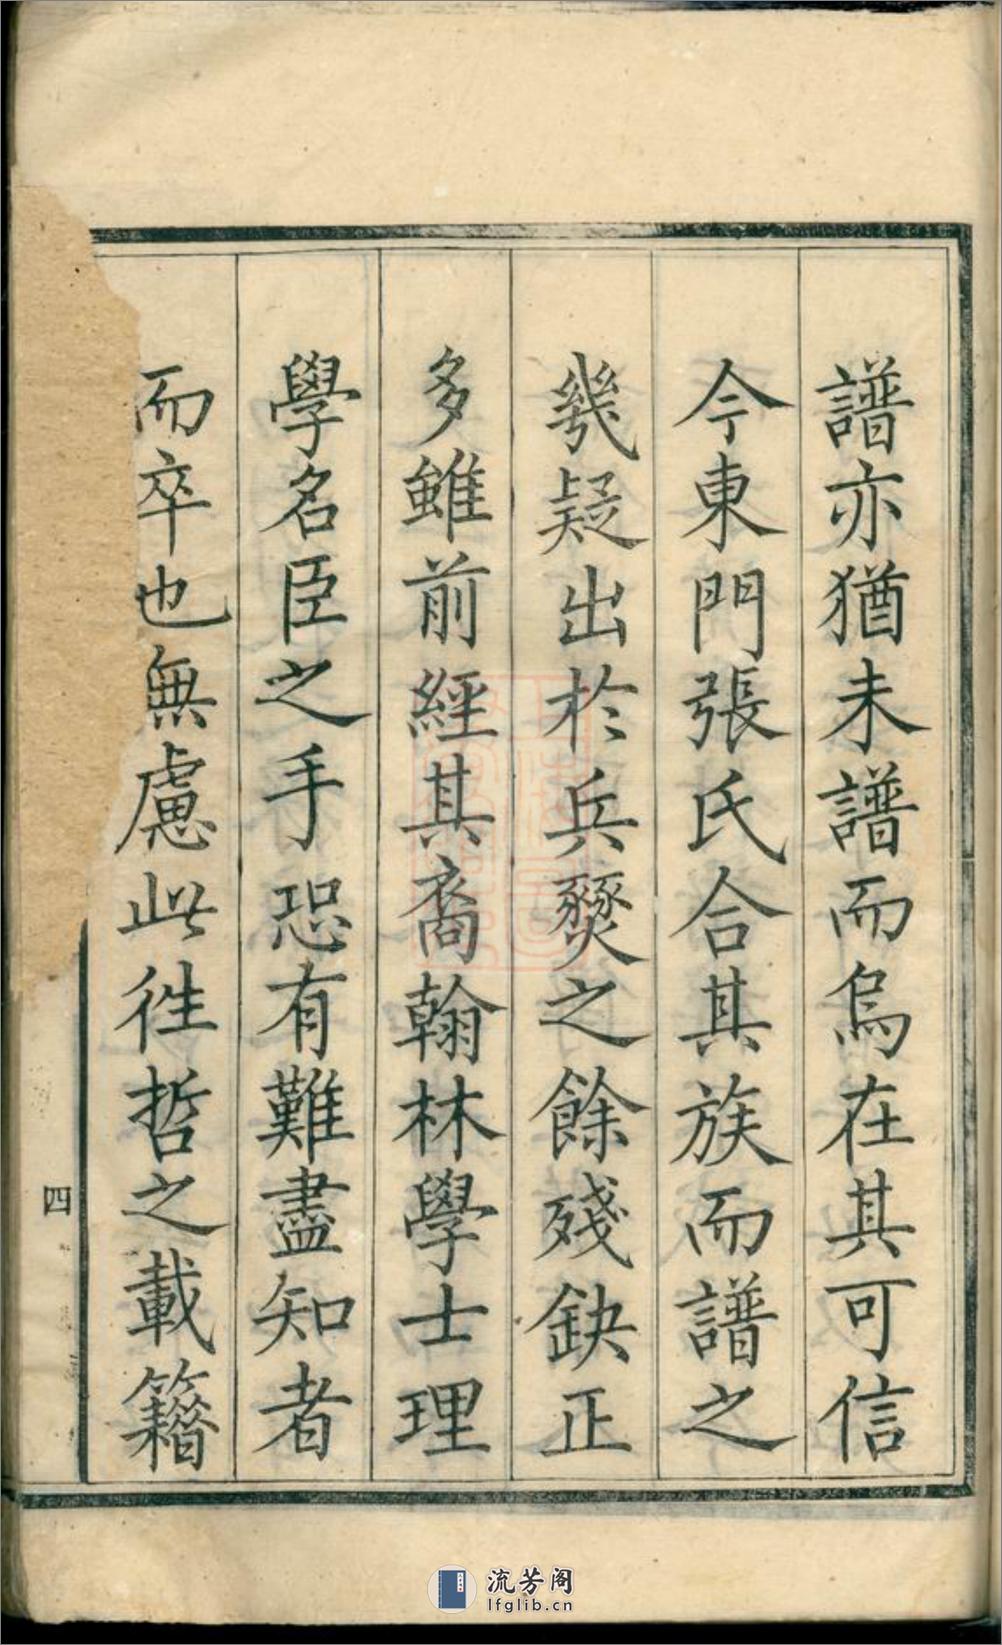 譜亦猶未譜而烏在其可信
今東門張氏合其族而譜之
幾疑出於兵燹之餘殘缺正
多雖前經其裔翰林學士理
學名臣之手恐有難盡知者
而卒也無慮此徃哲之載籍
四
流芳阁
lfglib.cn